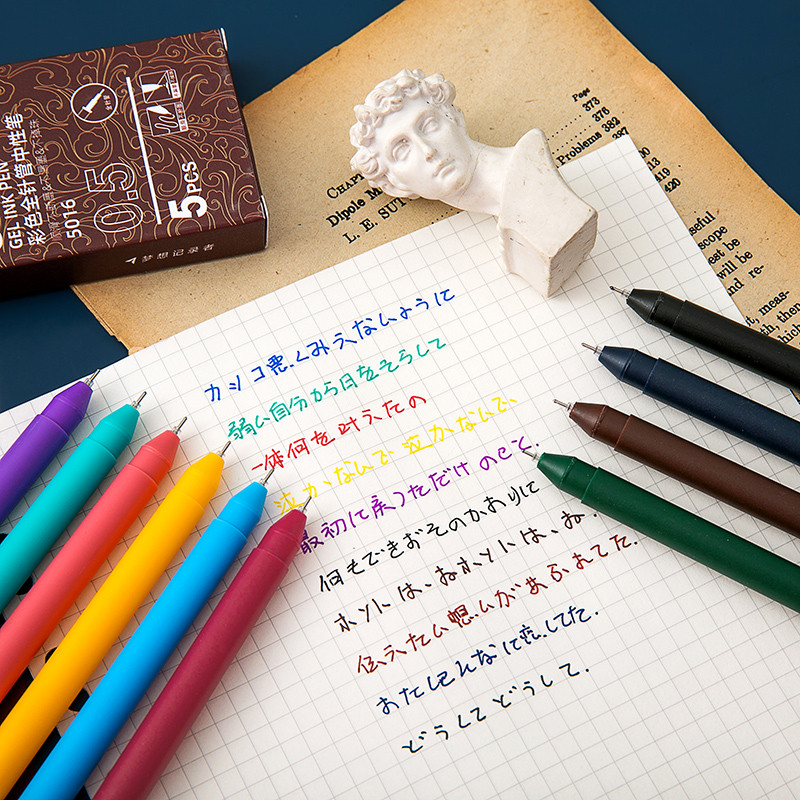 GEL INK PEN
彩色全针管中性笔
5016
0.5
5PCS
梦想记录者
Page
373
376
Problems 382
387
390
413
419
420
CHAPT
Dipole M
L. E. SUT
seful
scope
est be
will be
and re-
t, meas-
th, ther
which
カッコ悪くみえないように
弱い自分から目をそらして
一体何を叶えたの
泣かないで 泣かないで、
最初に戻っただけ のこと.
何もできおそのかわりに
ホントは、ねホントは、ね.
伝えたい想いがあふれてた.
おたしそんなに恋してた.
どうしてどうして.